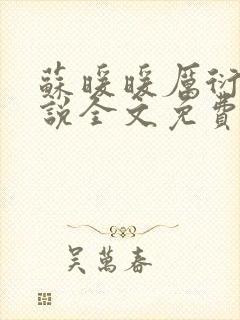 蘇暖暖厲衍
說全文免費
吳萬春